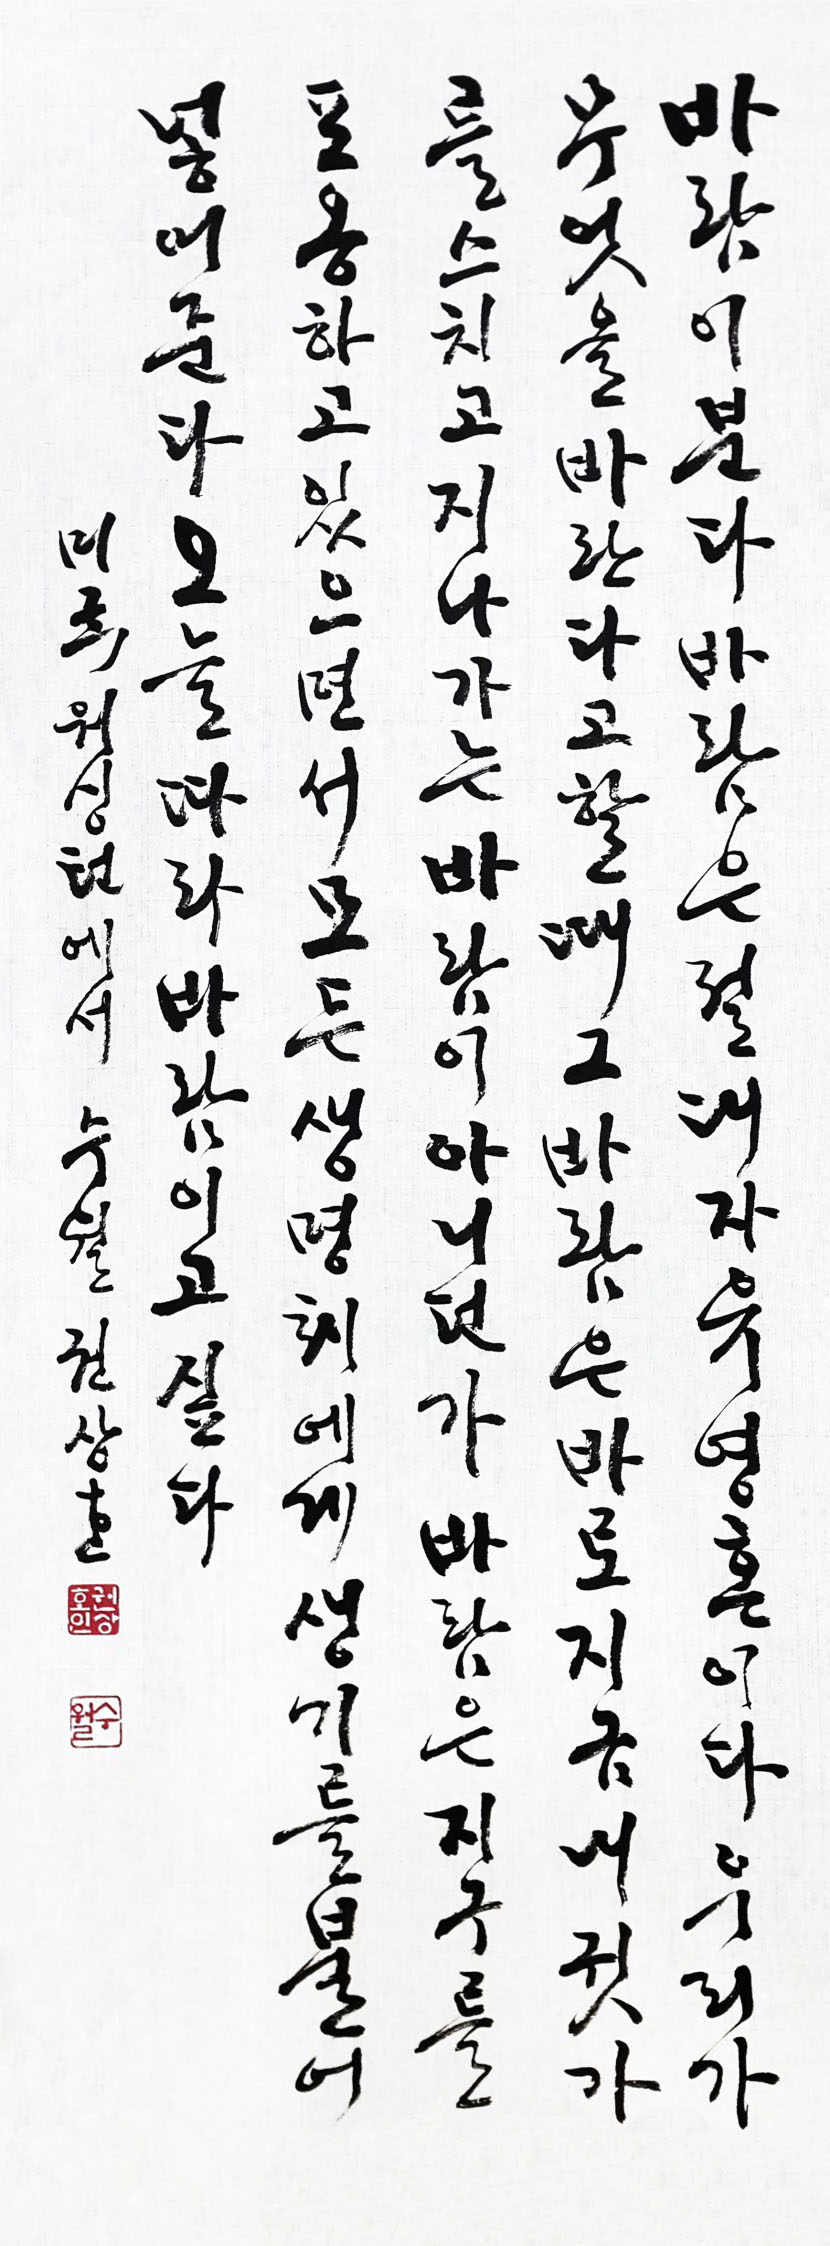 바람이분다바람은절대자유영혼이다우리가
무엇을바란다고할때그바람은바로지금내귓가
를스치고지나가는바람이아니던가바람은지구를
포옹하고있으면서모든생명체에게생기를불어
넣어준다오늘따라바람이고싶다
미국워싱턴에서 수월 권상호
권상호인
수월